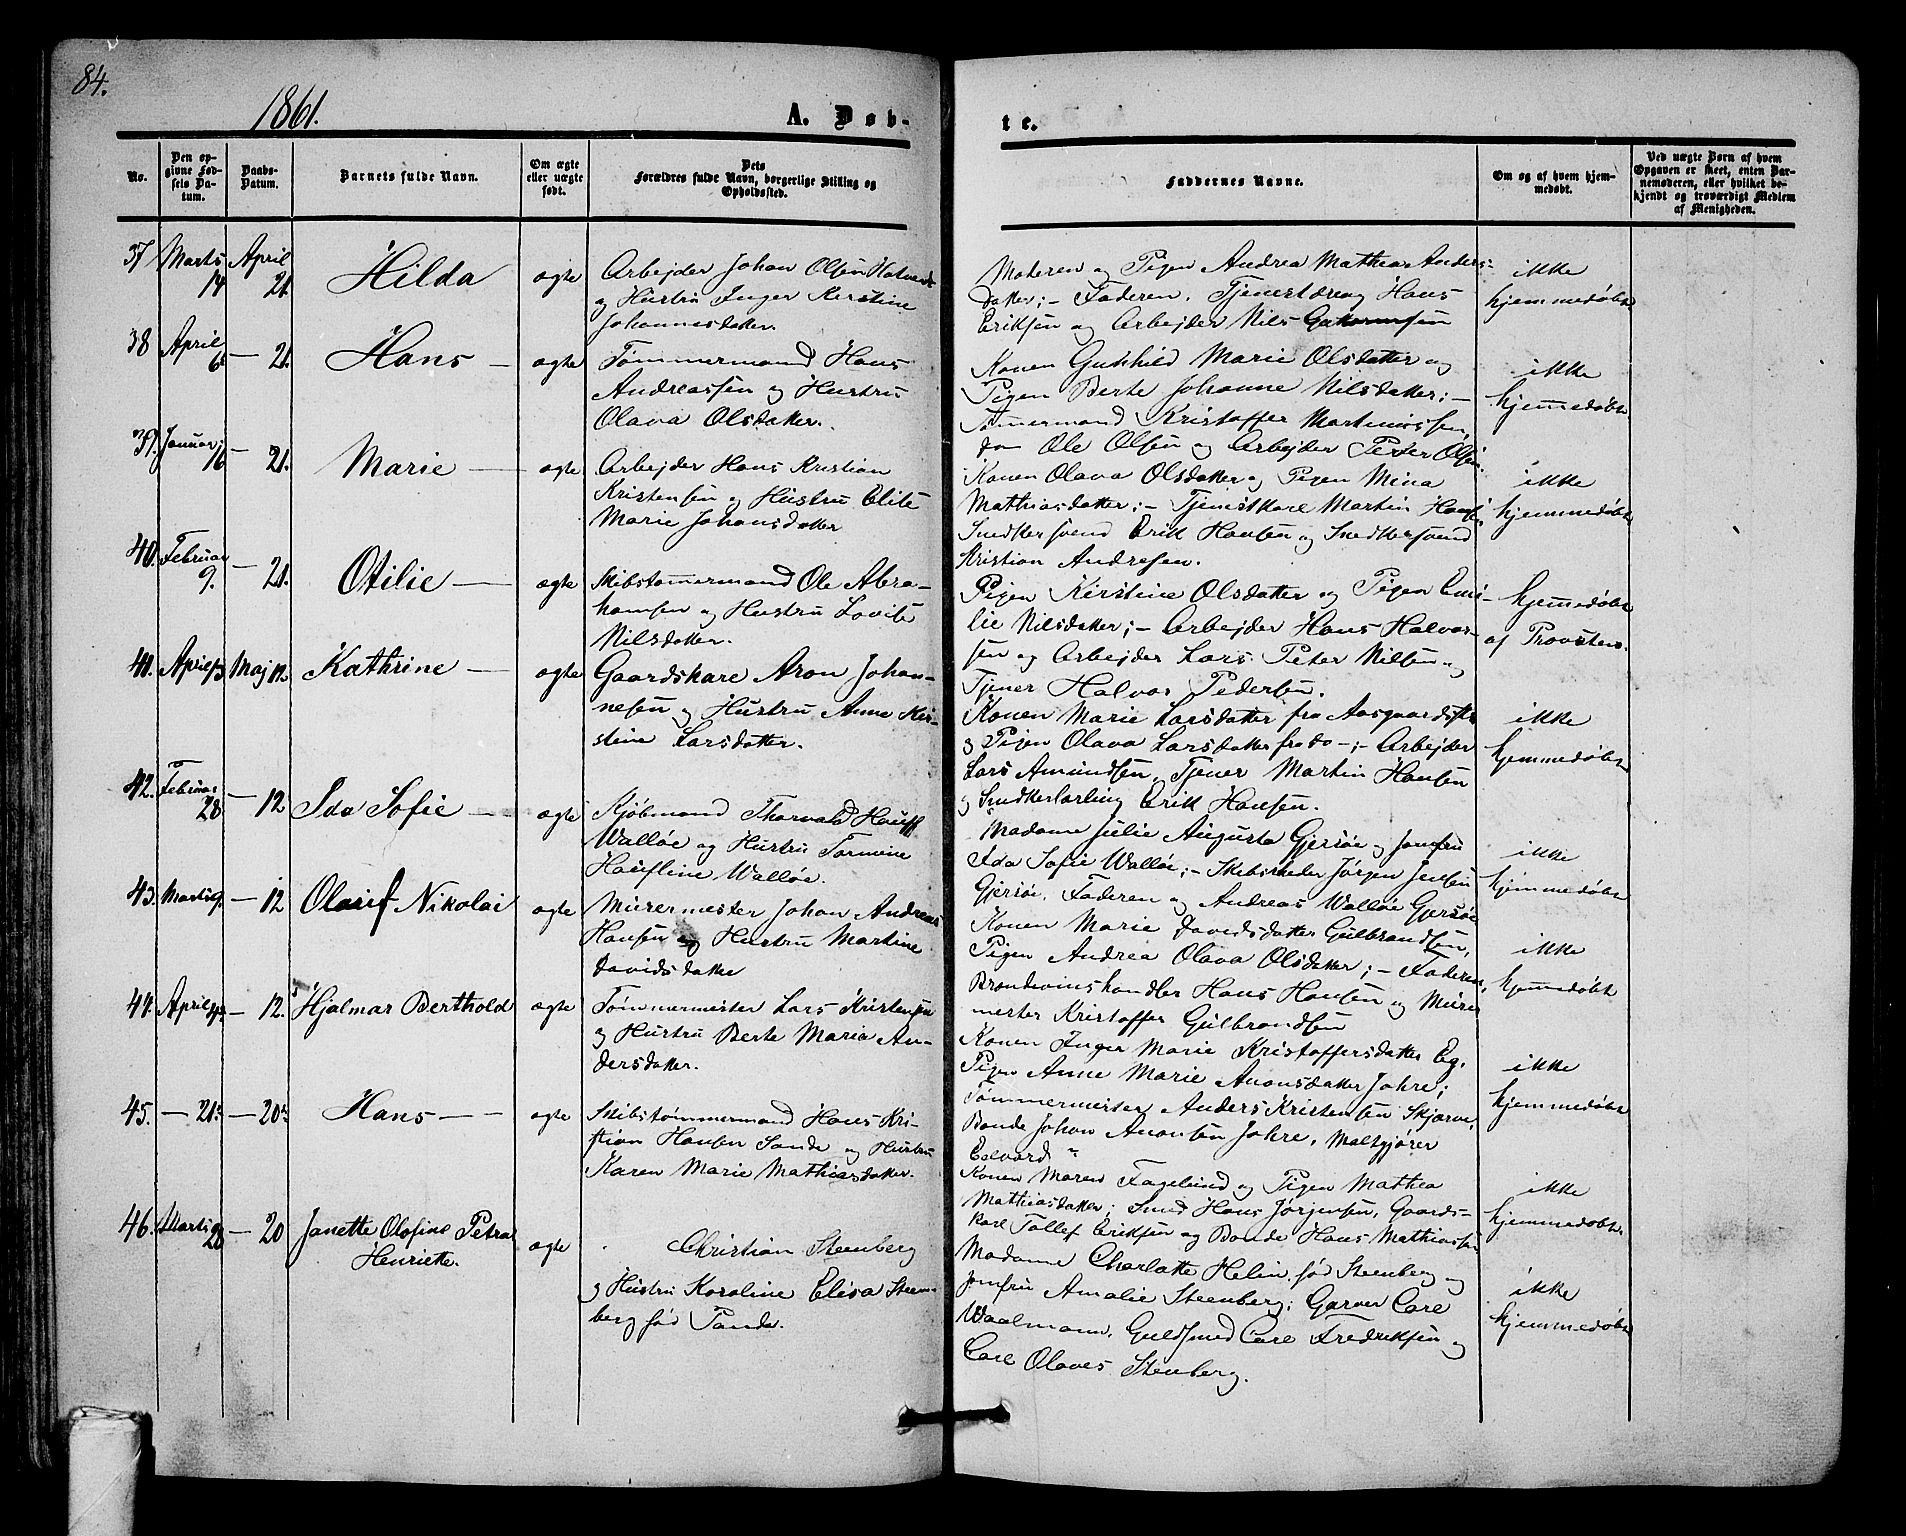 84.
1861.
A. Døb-
te.
No.
Den op-
givne Fød-
sels Da-
tum.
Daabs-
Datum.
Barnets fulde Navn.
Om ægte
eller uægte
født.
Dets
Forældres fulde Navn, borgerlige Stilling og
Opholdssted.
Faddernes Navne.
Om og af hvem hjem-
medøbt.
Ved uægte Børn af hvem
Opgaven er skeet, enten Bar-
nemoderen, eller hvilket be-
kjendt og troværdigt Medlem
af Menigheden.
37 Marts 14 April 21 Hilda ægte
Arbejder Johan Olsen
og Hustru Inger Kirstine
Johannesdatter.
Moderen og Pigen Andrea Mathea Anders-
datter; – Faderen, Tjenestdreng Hans
Eriksen og Arbejder Nils
ikke
hjemmedøbt
38 April 6 – 21. Hans – ægte
Tømmermand Hans
Andreassen og Hustru
Olava Olsdatter.
Konen Gunhild Marie Olsdatter og
Pigen Berte Johanne Nilsdatter; –
Tømmermand Kristoffer Martinussen,
do Ole Olsen og Arbejder Peter Olsen.
ikke
hjemmedøbt
39. Januar 16 – 21. Marie – ægte
Arbejder Hans Kristian
Kristensen og Hustru Elise
Marie Johansdatter
Konen Olava Olsdatter og Pigen Mina
Mathiasdatter; – Tjenstkarl Martin Hansen
Snedkersvend Erik Hansen og Snedkersvend
Kristian Andresen.
ikke
hjemmedøbt
40. Februar 9. – 21. Otilie – ægte
Skibstømmermand Ole Abra-
hamsen og Hustru Lovise
Nilsdatter.
Pigen Kirstine Olsdatter og Pigen Emi-
lie Nilsdatter; – Arbejder Hans Halvor-
sen og Arbejder Lars Peter Nilsen og
Tjener Halvor Pedersen.
hjemmedøbt
af Provsten.
41. April Maj 12. Kathrine – ægte
Gaardskarl Aron Johan-
nesen og Hustru Anne Kir-
stine Larsdatter.
Konen Marie Larsdatter fra
og Pigen Olava Larsdatter fra do –; – Arbejder
Lars Amundsen, Tjener Martin Hansen
og Snedkerlærling Erik Hansen.
ikke
hjemmedøbt
42. Februar 28 – 12 Ida Sofie – ægte
Kjøbmand Thorvald Hauff
Walløe og Hustru
Walløe.
Madame Julie Augusta Gjersøe og Jomfru
Ida Sofie Walløe; – Skibsreder Jørgen Jensen
Gjersøe, Faderen og Andreas Walløe Gjersøe
ikke
hjemmedøbt
43. Marts 9. – 12 Olauf Nikolai ægte
Murermester Johan Andreas
Hansen og Hustru Martine
Davidsdatter
Konen Marie Davidsdatter Gulbrandsen,
Pigen Andrea Olava Olsdatter; – Faderen,
Brændevinshandler Hans Hansen og Murer
mester Kristoffer Gulbrandsen
ikke
hjemmedøbt
44. April – 12. Hjalmar Berthold ægte
Tømmermester Lars Kristensen
og Hustru Berte Maria An-
dersdatter.
Konen Inger Marie Kristoffersdatter Eg,
Pigen Anne Marie Jahre;
Tømmermester Anders Kristensen Skjærve,
Bonde Johan Jahre, Maltgjører
ikke
hjemmedøbt
45. – 21. – 20. Hans – – ægte
Skibstømmermand Hans Kri-
stian Hansen Sande og Hustru
Karen Marie Mathiasdatter.
Konen Maren og Pigen Mathea
Mathiasdatter; Smed Hans Jørgensen, Gaards-
karl Tollef Eriksen og Bonde Hans Mathiassen
ikke
hjemmedøbt
46. Marts 28 – 20 Janette Olofine Petra
Henriette. ægte
Christian Steenberg
og Hustru Karoline Elisa Steen-
berg født
Madamme Charlotte Helin, fød Steenberg og
Jomfru Amalie Steenberg; Garver Carl
Waalmann, Guldsmed Carl Fredriksen og
Carl Olaves Steenberg.
ikke
hjemmedøbt